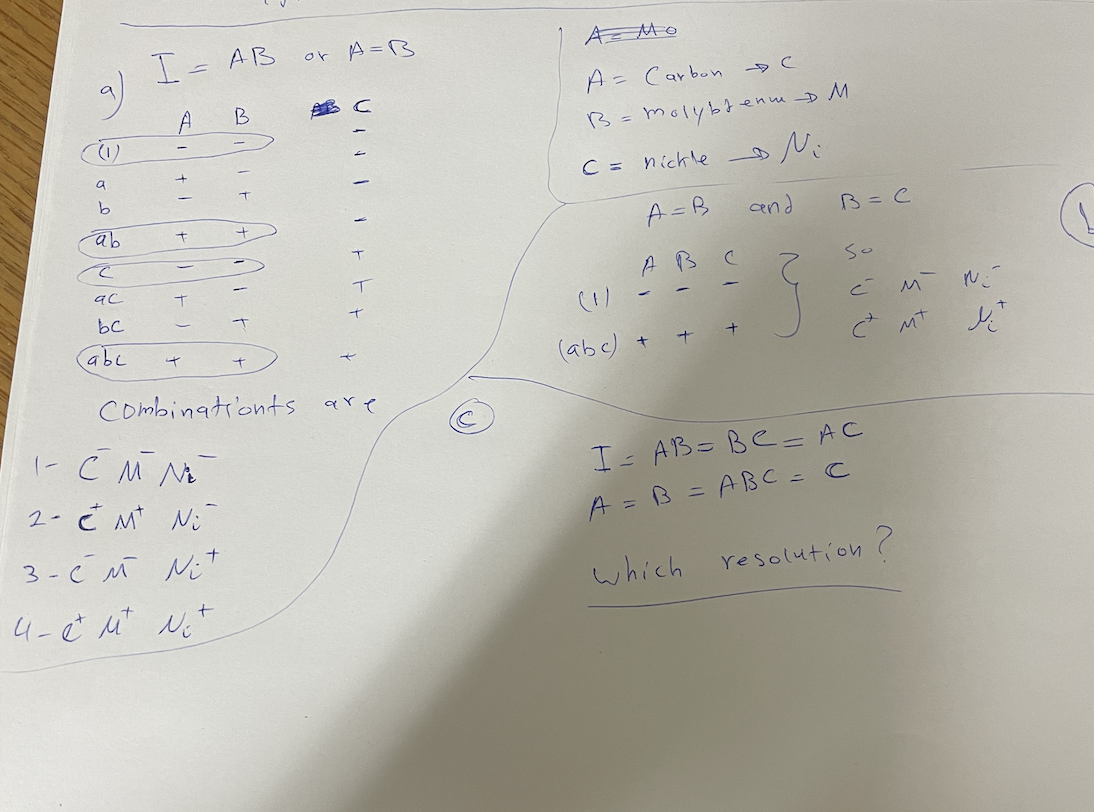 a) I = AB or A=B
A B C
-
(1) - - -
a + - -
b - +
ab + + -
c - - +
ac + - +
bc - + +
abc + + +
Combinationts are
1- C⁻ M⁻ Ni⁻
2- C⁺ M⁺ Ni⁻
3- C⁻ M⁻ Ni⁺
4- C⁺ M⁺ Ni⁺
A = Mo
A = Carbon → C
B = molybtenum → M
C = nickle → Ni
A=B and B=C
A B C so
(1) - - - C⁻ M⁻ Ni⁻
(abc) + + + C⁺ M⁺ Ni⁺
C
I = AB = BC = AC
A = B = ABC = C
which resolution?